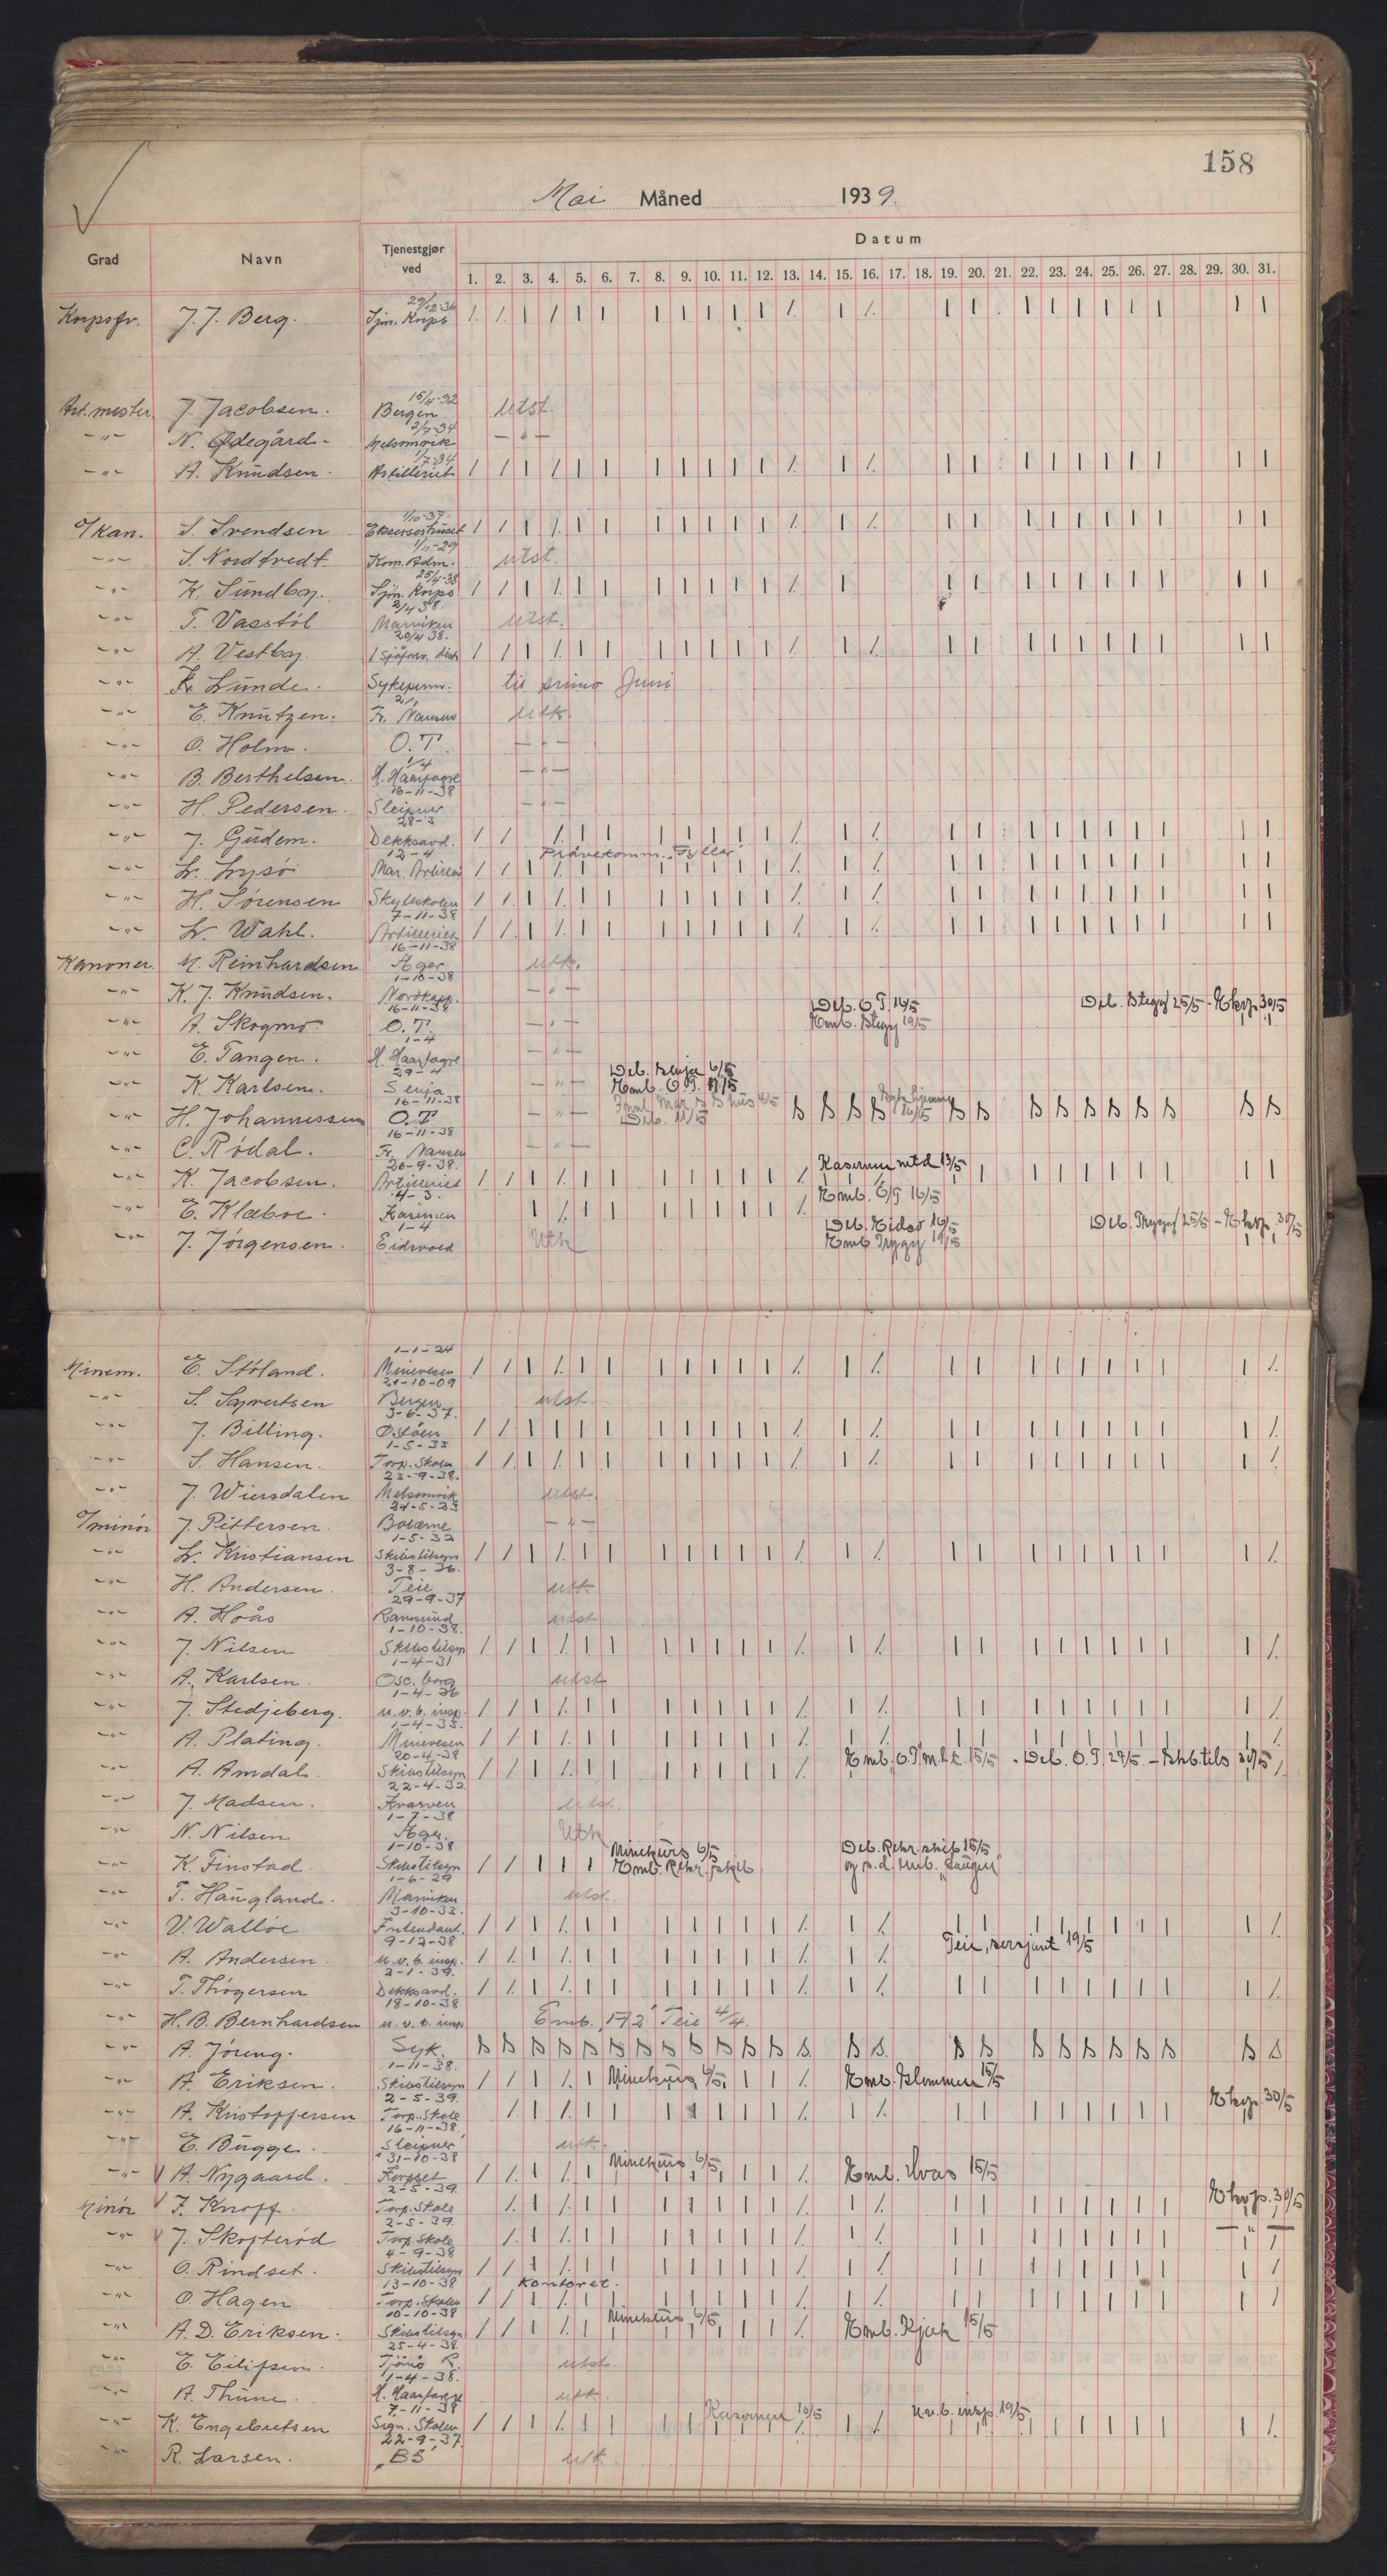 158
Mai Måned 1939.
Grad Navn Tjenestgjør ved Datum
1. 2. 3. 4. 5. 6. 7. 8. 9. 10. 11. 12. 13. 14. 15. 16. 17. 18. 19. 20. 21. 22. 23. 24. 25. 26. 27. 28. 29. 30. 31.
29/12-36
Korpsfv. J. J. Berg. Sjm. Korps
15/4-32
Art. mester J. Jacobsen. Bergen utst.
2/7-34
-"- N. Ødegård- Melsomvik -"-
1/7-34
-"- A. Knudsen. Artilleriet
1/10-37.
O/Kan. S. Svendsen Ekserserhuset
1/11-29
-"- S. Nordtvedt Kom. Adm. utst.
25/4-38
-"- K. Sundby. Sjm. Korps
2/4 38.
-"- T. Vasstøl Marviken utst.
20/4 38.
-"- A. Vestby 1 Sjøforv. distr
-"- K. Lunde. Sykeperm. til primo Juni
-"- E. Knutzen. Fr. Nansen utk.
-"- O. Holm. O.T. -"-
1/4
-"- B. Berthelsen. H. Haarfagre -"-
16-11-38
-"- H. Pedersen. Sleipner -"-
28-3
-"- J. Gudem. Dekksavd.
12-4 Prøvekomm. "Fyller"
-"- L. Lysø Mar. Artilleri
-"- H. Sørensen Skyteskolen
7-11-38
-"- L. Wahl. Artilleriet
16-11-38
Kanoner. M. Reinhardsen Æger utk.
1-10-38
-"- K. J. Knudsen. Nordkapp. -"- Deb. O.T. 16/5 Deb. Stegg 25/5 - Eksp. 30/5
16-11-38 Emb. Stegg 19/5
-"- A. Skogmo. O.T. -"-
1-4
-"- E. Tangen. H. Haarfagre -"-
29-4 Deb. Senja 6/5
-"- K. Karlsen. Senja -"- Emb. O.T. 11/5
16-11-38
-"- H. Johannessen O.T -"- Deb. 11/5 16/5 S S S S S S S S S S S S S S
16-11-38
-"- C. Rødal. Fr. Nansen -"-
26-9-38. Kasernen mtd 13/5
-"- K. Jacobsen. Artilleriet
4-3. Emb. O/T 16/5
-"- E. Klæboe. Karinen
1-4 Deb. Eidsv 16/5 Deb. Trygg 25/5 - Eksp. 30/5
-"- J. Jørgensen. Eidsvold Utk Emb Trygg 19/5
1-1-24
Minem. E. Støland. Minevesen
21-10-09
-"- S. Syvertsen Bergen utst.
3-6-37.
-"- J. Billing. Ø.støen
1-5-33
-"- S. Hansen. Torp. Skolen
23-9-38.
-"- J. Wiersdalen Melsomvik utst.
24-5-23
O/minør J. Pettersen. Bolærne -"-
1-5-32
-"- L. Kristiansen Skibstilsyn
3-8-36.
-"- H. Andersen. Teie utk
29-9-37
-"- A. Hoås Ramsund utst.
1-10-38.
-"- J. Nilsen Skibstilsyn
1-4-31
-"- A. Karlsen. Osc. borg utst
1-4-36
-"- J. Stedjeberg. u.v.b. insp.
1-4-33.
-"- A. Plating. Minevesen
20-4-38 Emb. O.T. 15/5 - Deb. O.T. 29/5 - Skb.tils 30/5
-"- A. Amdal. Skibstilsyn
22-4-32
-"- J. Madsen. Kvarven utst.
1-7-38
-"- N. Nilsen Æger. Utk
1-10-38 Minekurs 6/5 Deb. Rekr. skip 15/5
-"- K. Finstad. Skibstilsyn Emb. Rekr. skib og s.d. emb. "Laugen"
1-6-29
-"- T. Haugland. Marviken utst.
3-10-32.
-"- V. Walløe Intendant.
9-12-38 Teie, sersjant 19/5
-"- A. Andersen. u.v.b. insp.
2-1-39.
-"- T. Thøgersen Dekksavd.
18-10-38
-"- H. B. Bernhardsen u.v.b. insp Emb. "A2" Teie 4/4.
-"- A. Jøreng. Syk. S S S S S S S S S S S S S S S S S S S S S S S
1-11-38.
-"- A. Eriksen. Skibstilsyn Minekurs 6/5 Emb. Glommen 15/5
2-5-39. Eksp. 30/5
-"- A. Kristoffersen Torp. Skole
16-11-38
-"- E. Bugge. Sleipner utk.
31-10-38 Minekurs 6/5
-"- A. Nygaard. Korpset Emb. Uvas 15/5
2-5-39. Eksp. 30/5
Minør F. Knoff. Torp. Skole
2-5-39.
-"- J. Skofterød Torp. Skole -"-
4-9-38
-"- O. Rindset. Skibstilsyn
13-10-38 Kontoret.
-"- O. Hagen Torp. Skolen
10-10-38 Minekurs 6/5
-"- A. D. Eriksen. Skibstilsyn Emb. Kjæk 15/5
25-4-38
-"- E. Eilifsen. Tjømø R. utst.
1-4-38.
-"- A. Thune. H. Haarfagre utk.
7-11-38 Kasernen 10/5 u.v.b. insp. 19/5
-"- K. Engebretsen Sign. Skolen
22-9-37.
-"- R. Larsen. "B5" utk.